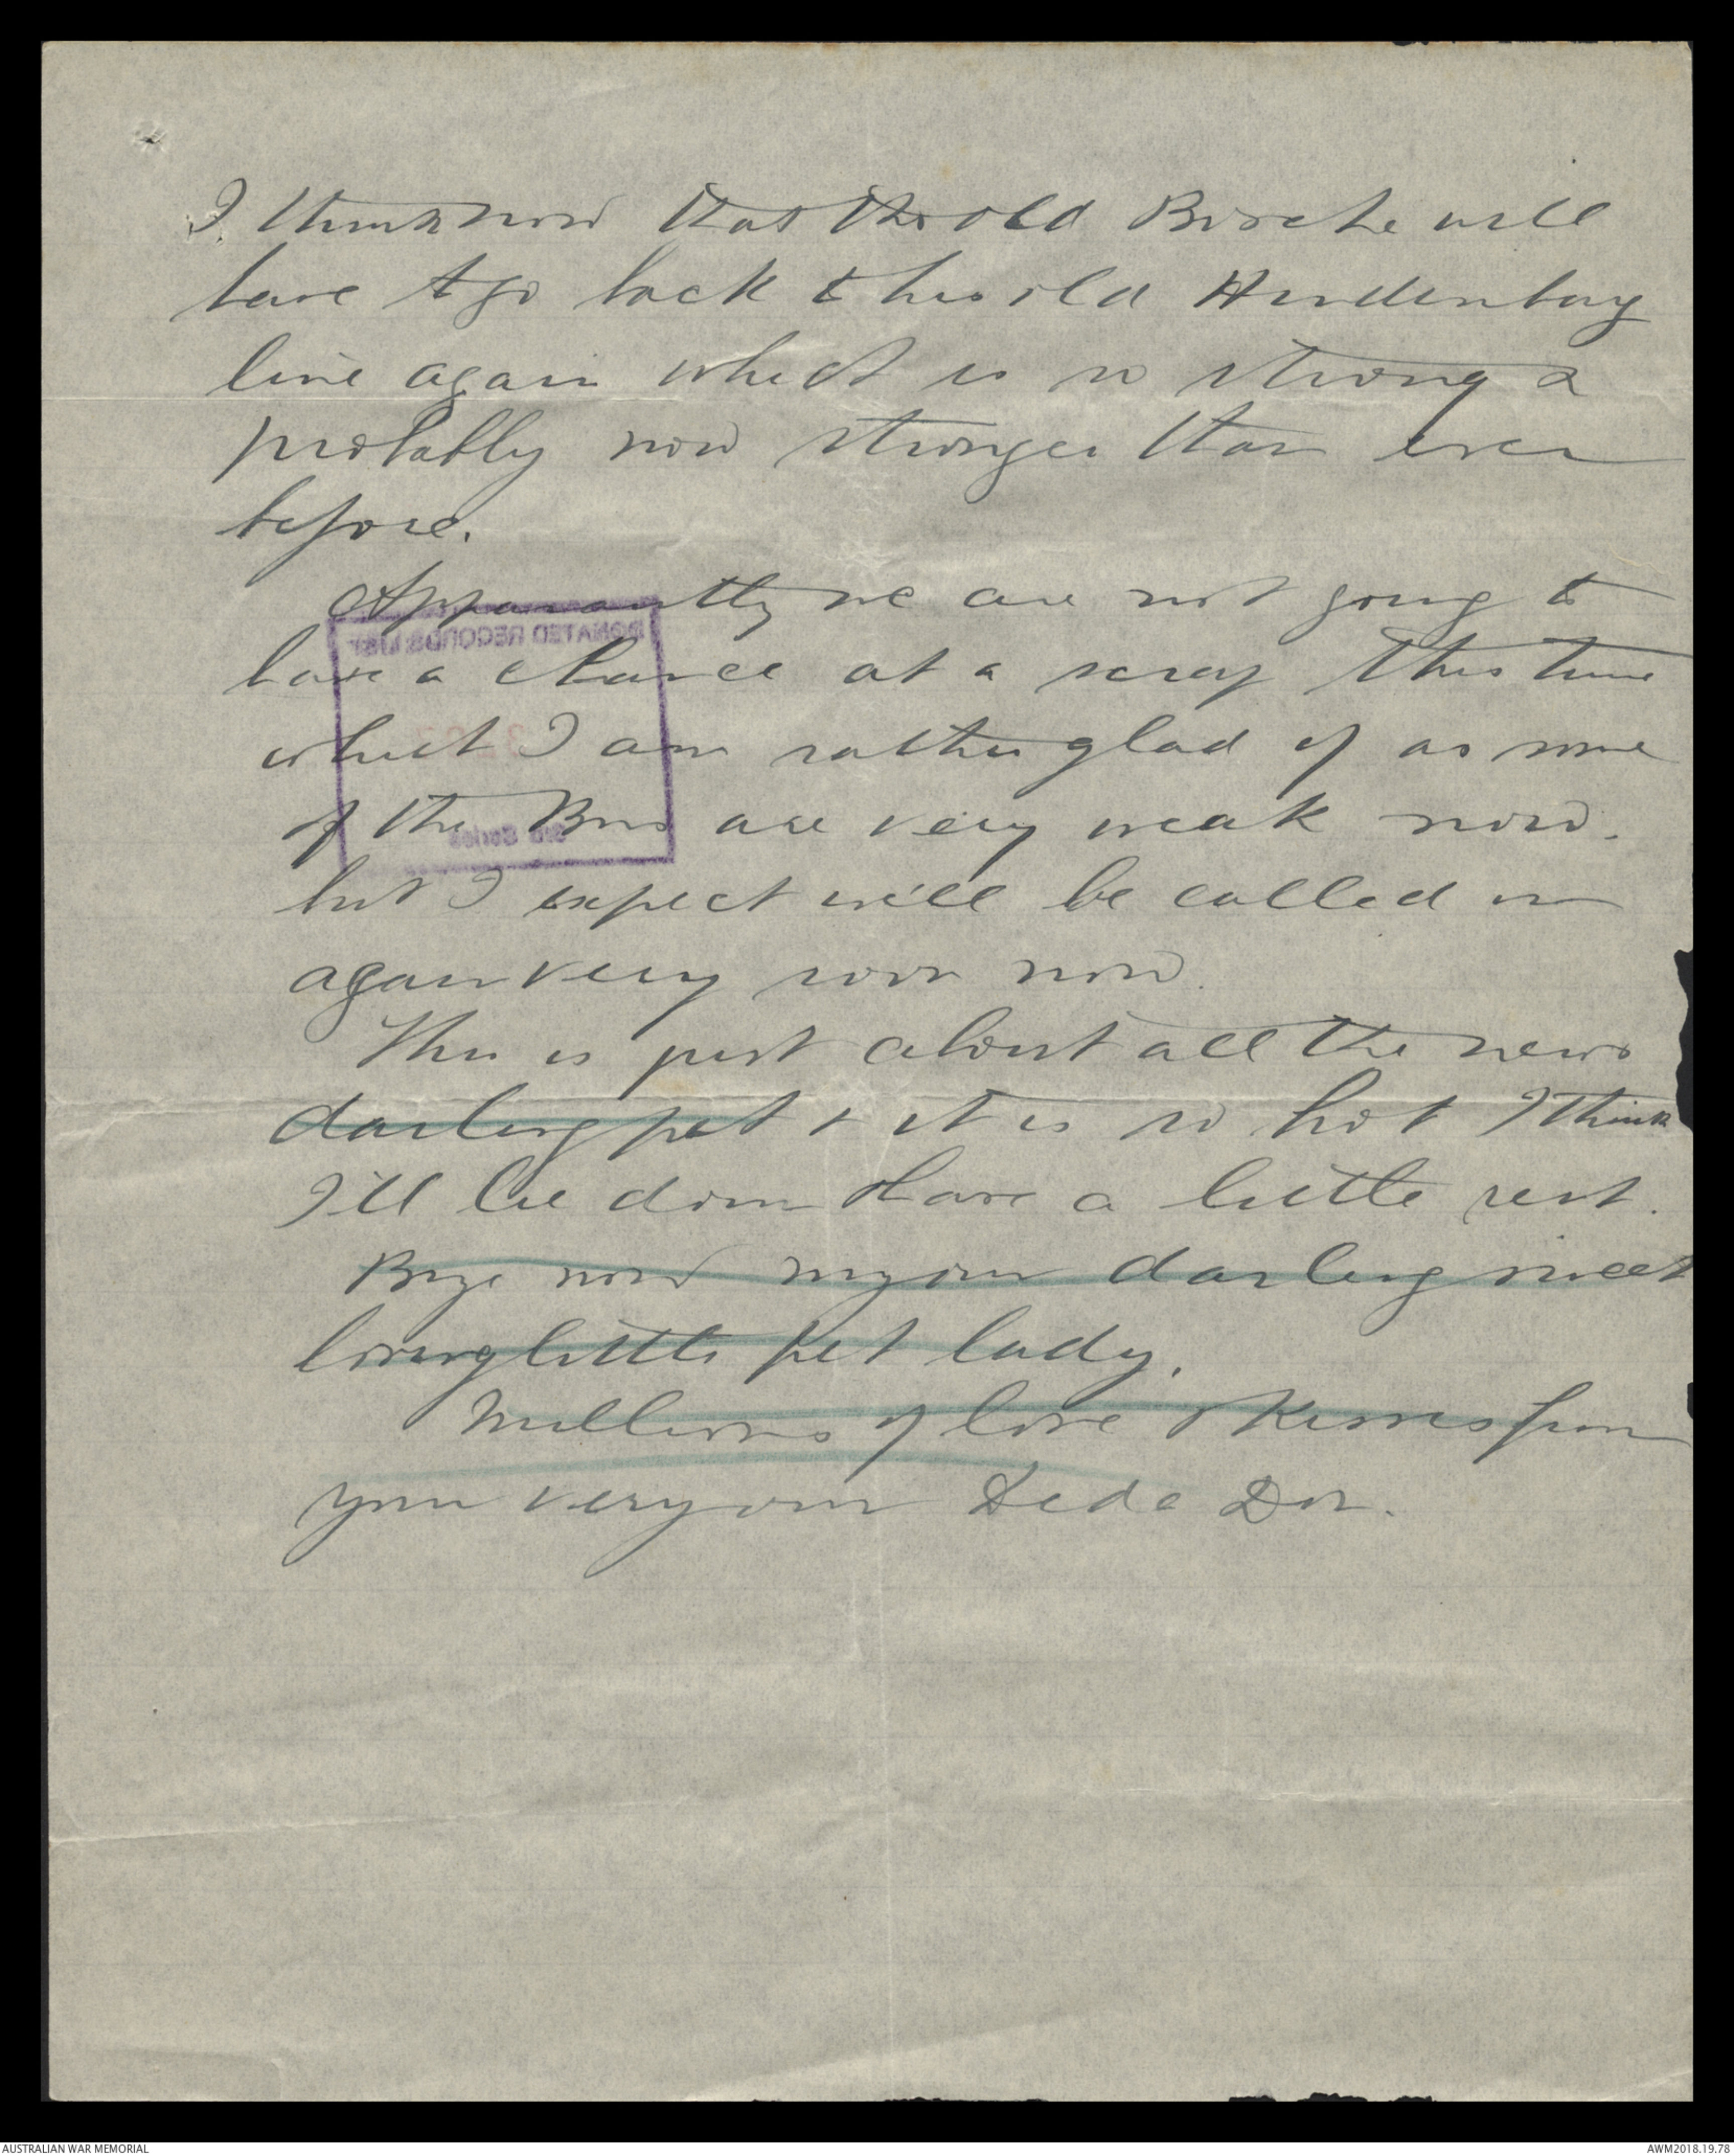 I think now that the old Bosche will
have to go back to his old Hindenburg
line again which is so strong &
probably now stronger than ever
before.
Apparantly we are not going to
have a chance at a scrap this time
which I am rather glad of as some
of the Bns are very weak now.
but I expect will be called on
again very soon now.
This is just about all the news
darling pet & it is so hot I think
I'll lie down & have a little rest.
Bye now my own darling sweet
loving little pet lady.
Millions of love & kisses from
your very own Dede Don.
DONATED RECORDS LIST
3rd Series
AUSTRALIAN WAR MEMORIAL
AWM2018.19.78